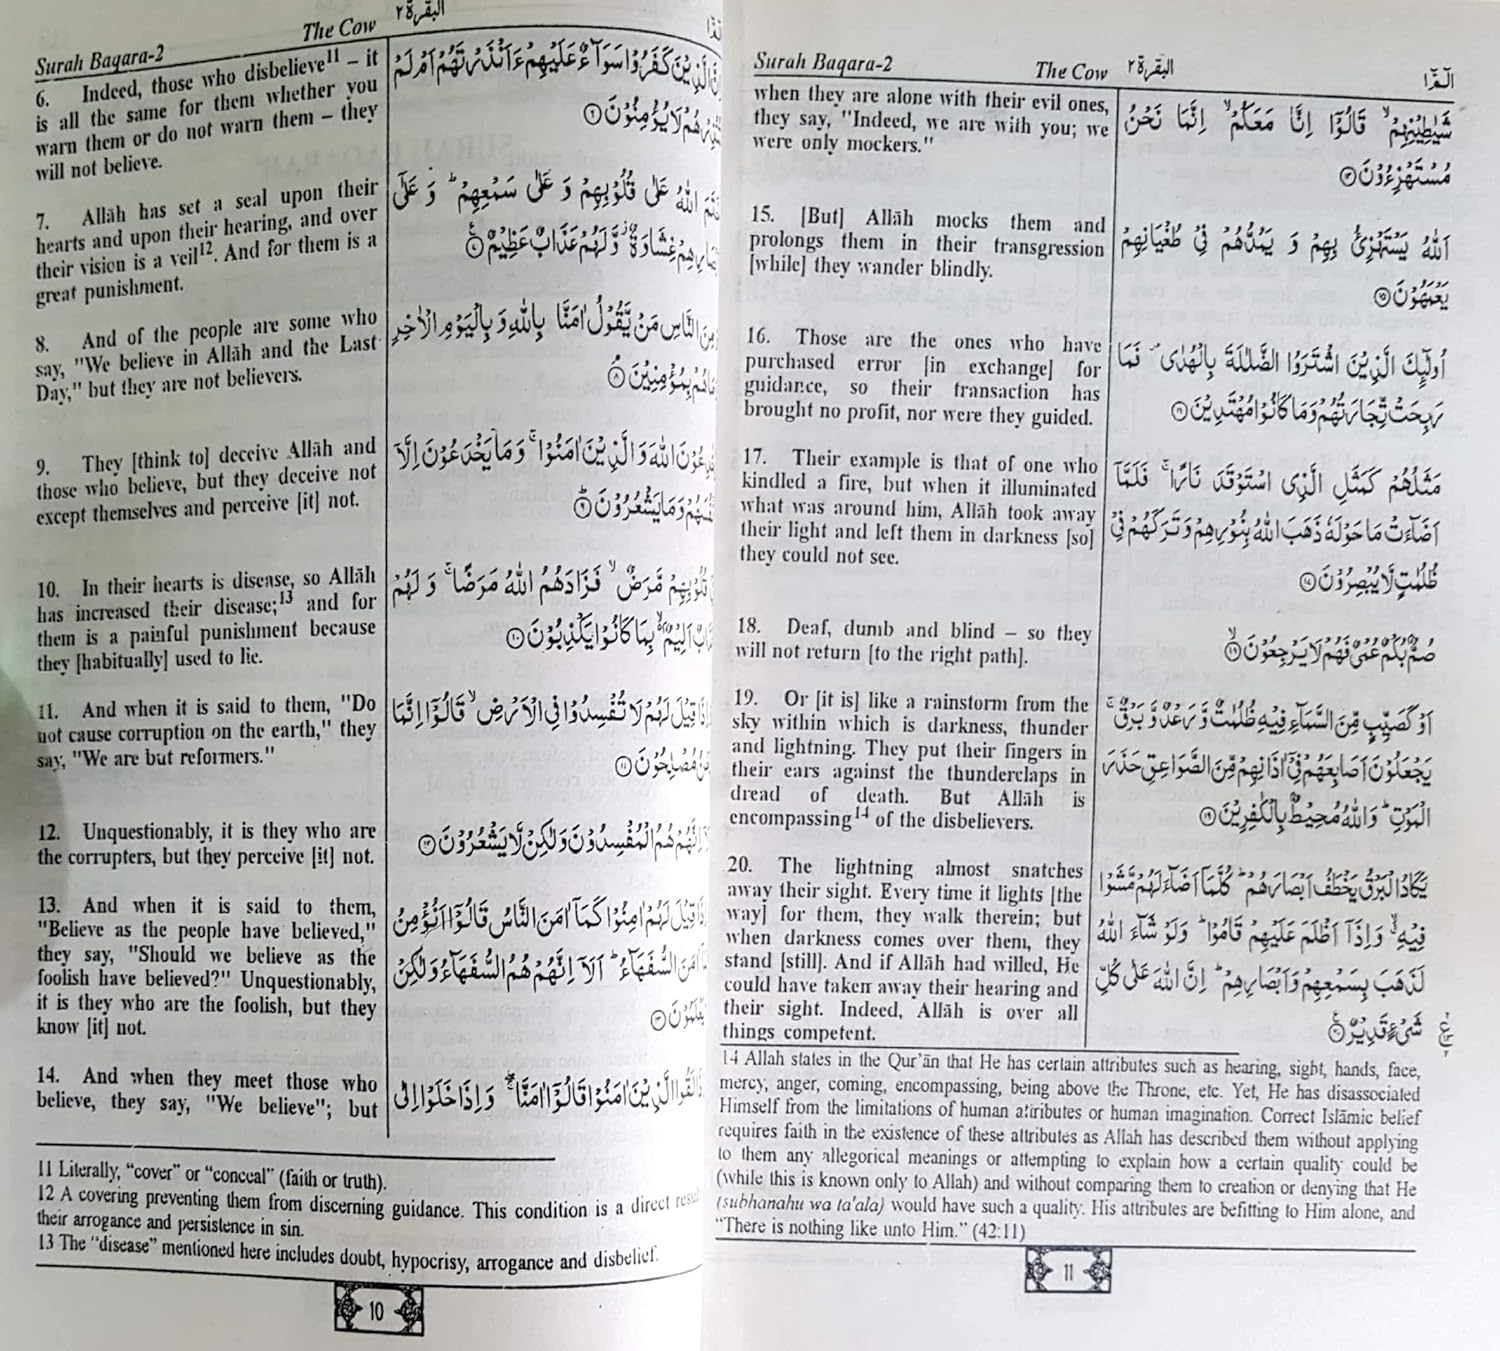 Surah Baqara-2
The Cow
البقرة ٢
6. Indeed, those who disbelieve11 – it
is all the same for them whether you
warn them or do not warn them – they
will not believe.
7. Allāh has set a seal upon their
hearts and upon their hearing, and over
their vision is a veil12. And for them is a
great punishment.
8. And of the people are some who
say, "We believe in Allāh and the Last
Day," but they are not believers.
9. They [think to] deceive Allāh and
those who believe, but they deceive not
except themselves and perceive [it] not.
10. In their hearts is disease, so Allāh
has increased their disease;13 and for
them is a painful punishment because
they [habitually] used to lie.
11. And when it is said to them, "Do
not cause corruption on the earth," they
say, "We are but reformers."
12. Unquestionably, it is they who are
the corrupters, but they perceive [it] not.
13. And when it is said to them,
"Believe as the people have believed,"
they say, "Should we believe as the
foolish have believed?" Unquestionably,
it is they who are the foolish, but they
know [it] not.
14. And when they meet those who
believe, they say, "We believe"; but
الَّذِيْنَ كَفَرُوْا سَوَآءٌ عَلَيْهِمْ ءَاَنْذَرْتَهُمْ اَمْ لَمْ
لَا يُؤْمِنُوْنَ ۝٦
اللّٰهُ عَلٰى قُلُوْبِهِمْ وَ عَلٰى سَمْعِهِمْ ؕ وَ عَلٰٓى
غِشَاوَةٌ ؗ وَّ لَهُمْ عَذَابٌ عَظِيْمٌ ۝٧
النَّاسِ مَنْ يَّقُوْلُ اٰمَنَّا بِاللّٰهِ وَ بِالْيَوْمِ الْاٰخِرِ
بِمُؤْمِنِيْنَ ۝٨
اللّٰهَ وَ الَّذِيْنَ اٰمَنُوْا ۚ وَ مَا يَخْدَعُوْنَ اِلَّاۤ
وَ مَا يَشْعُرُوْنَ ۝٩
قُلُوْبِهِمْ مَّرَضٌ ۙ فَزَادَهُمُ اللّٰهُ مَرَضًا ۚ وَ لَهُمْ
اَلِيْمٌۢ ۙ بِمَا كَانُوْا يَكْذِبُوْنَ ۝١٠
قِيْلَ لَهُمْ لَا تُفْسِدُوْا فِي الْاَرْضِ ۙ قَالُوْۤا اِنَّمَا
مُصْلِحُوْنَ ۝١١
اِنَّهُمْ هُمُ الْمُفْسِدُوْنَ وَ لٰكِنْ لَّا يَشْعُرُوْنَ ۝١٢
قِيْلَ لَهُمْ اٰمِنُوْا كَمَاۤ اٰمَنَ النَّاسُ قَالُوْۤا اَنُؤْمِنُ
السُّفَهَآءُ ؕ اَلَاۤ اِنَّهُمْ هُمُ السُّفَهَآءُ وَ لٰكِنْ
۝١٣
الَّذِيْنَ اٰمَنُوْا قَالُوْۤا اٰمَنَّا ۚ وَ اِذَا خَلَوْا اِلٰى
11 Literally, “cover” or “conceal” (faith or truth).
12 A covering preventing them from discerning guidance. This condition is a direct result
their arrogance and persistence in sin.
13 The “disease” mentioned here includes doubt, hypocrisy, arrogance and disbelief.
10
Surah Baqara-2
The Cow
البقرة ٢
الٓمّٓ ١
when they are alone with their evil ones,
they say, "Indeed, we are with you; we
were only mockers."
15. [But] Allāh mocks them and
prolongs them in their transgression
[while] they wander blindly.
16. Those are the ones who have
purchased error [in exchange] for
guidance, so their transaction has
brought no profit, nor were they guided.
17. Their example is that of one who
kindled a fire, but when it illuminated
what was around him, Allāh took away
their light and left them in darkness [so]
they could not see.
18. Deaf, dumb and blind – so they
will not return [to the right path].
19. Or [it is] like a rainstorm from the
sky within which is darkness, thunder
and lightning. They put their fingers in
their ears against the thunderclaps in
dread of death. But Allāh is
encompassing14 of the disbelievers.
20. The lightning almost snatches
away their sight. Every time it lights [the
way] for them, they walk therein; but
when darkness comes over them, they
stand [still]. And if Allāh had willed, He
could have taken away their hearing and
their sight. Indeed, Allāh is over all
things competent.
شَيٰطِيْنِهِمْ ۙ قَالُوْۤا اِنَّا مَعَكُمْ ۙ اِنَّمَا نَحْنُ
مُسْتَهْزِءُوْنَ ۝١٤
اَللّٰهُ يَسْتَهْزِئُ بِهِمْ وَ يَمُدُّهُمْ فِيْ طُغْيَانِهِمْ
يَعْمَهُوْنَ ۝١٥
اُولٰٓئِكَ الَّذِيْنَ اشْتَرَوُا الضَّلٰلَةَ بِالْهُدٰى ۪ فَمَا
رَبِحَتْ تِّجَارَتُهُمْ وَ مَا كَانُوْا مُهْتَدِيْنَ ۝١٦
مَثَلُهُمْ كَمَثَلِ الَّذِى اسْتَوْقَدَ نَارًا ۚ فَلَمَّاۤ
اَضَآءَتْ مَا حَوْلَهٗ ذَهَبَ اللّٰهُ بِنُوْرِهِمْ وَ تَرَكَهُمْ فِيْ
ظُلُمٰتٍ لَّا يُبْصِرُوْنَ ۝١٧
صُمٌّۢ بُكْمٌ عُمْيٌ فَهُمْ لَا يَرْجِعُوْنَ ۝١٨
اَوْ كَصَيِّبٍ مِّنَ السَّمَآءِ فِيْهِ ظُلُمٰتٌ وَّ رَعْدٌ وَّ بَرْقٌ ۚ
يَجْعَلُوْنَ اَصَابِعَهُمْ فِيْۤ اٰذَانِهِمْ مِّنَ الصَّوَاعِقِ حَذَرَ
الْمَوْتِ ؕ وَ اللّٰهُ مُحِيْطٌۢ بِالْكٰفِرِيْنَ ۝١٩
يَكَادُ الْبَرْقُ يَخْطَفُ اَبْصَارَهُمْ ؕ كُلَّمَاۤ اَضَآءَ لَهُمْ مَّشَوْا
فِيْهِ ۙ وَ اِذَاۤ اَظْلَمَ عَلَيْهِمْ قَامُوْا ؕ وَ لَوْ شَآءَ اللّٰهُ
لَذَهَبَ بِسَمْعِهِمْ وَ اَبْصَارِهِمْ ؕ اِنَّ اللّٰهَ عَلٰى كُلِّ
شَيْءٍ قَدِيْرٌ ۝٢٠
14 Allah states in the Qur’ān that He has certain attributes such as hearing, sight, hands, face,
mercy, anger, coming, encompassing, being above the Throne, etc. Yet, He has disassociated
Himself from the limitations of human attributes or human imagination. Correct Islāmic belief
requires faith in the existence of these attributes as Allah has described them without applying
to them any allegorical meanings or attempting to explain how a certain quality could be
(while this is known only to Allah) and without comparing them to creation or denying that He
(subhanahu wa ta'ala) would have such a quality. His attributes are befitting to Him alone, and
“There is nothing like unto Him.” (42:11)
11